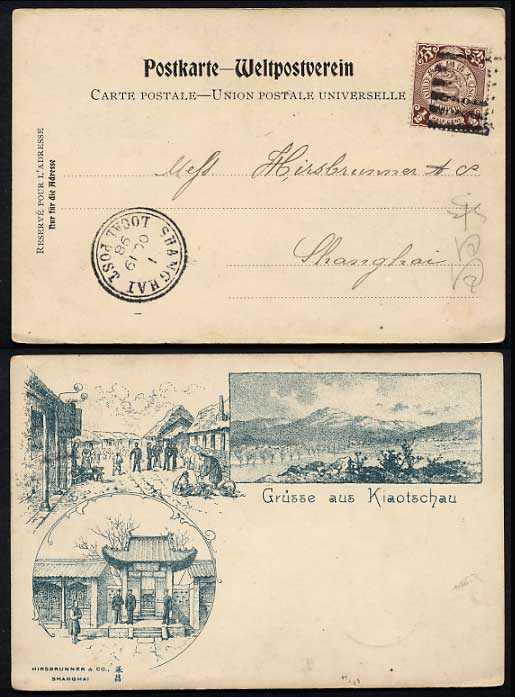 Postkarte—Weltpostverein
CARTE POSTALE—UNION POSTALE UNIVERSELLE
RESERVÉ POUR L'ADRESSE
Nur für die Adresse
Mess. Hirsbrunner & Co
Shanghai
SHANGHAI LOCAL POST
1
OC 19
98
Grüsse aus Kiaotschau
HIRSBRUNNER & CO.,
SHANGHAI